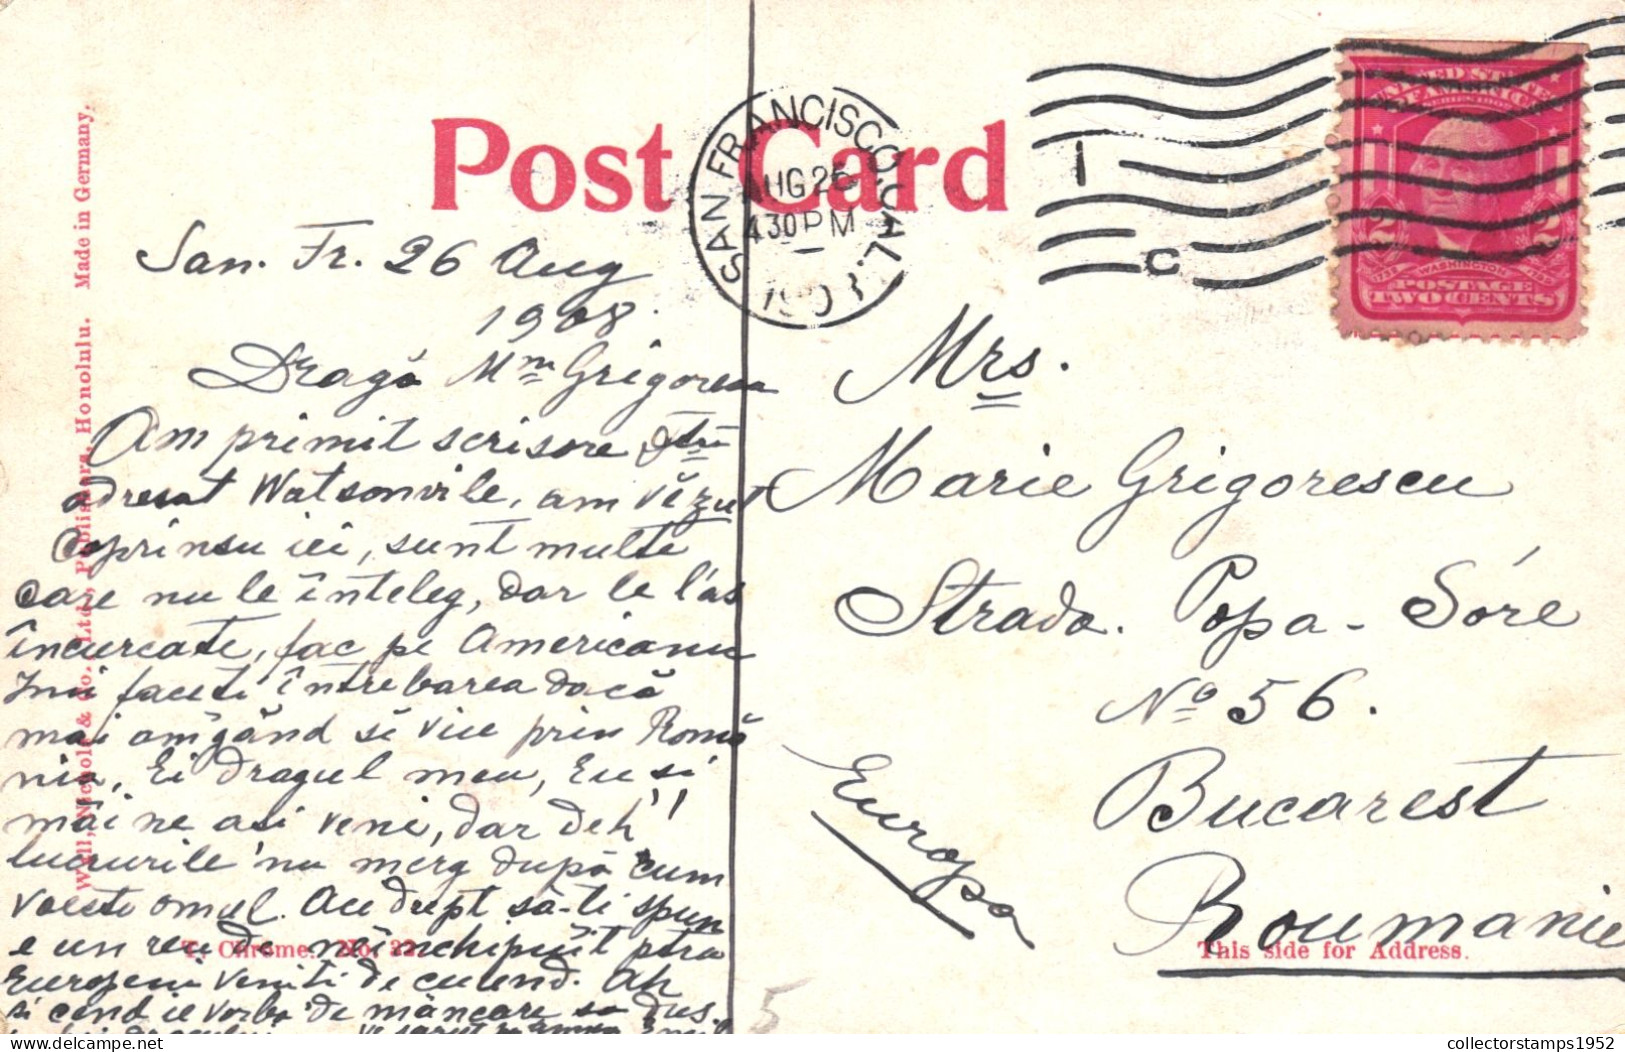 Post Card
SAN FRANCISCO, CAL.
AUG 26
4 30 PM
1908
1
C
UNITED STATES
OF AMERICA
SERIES 1902
2 2
1732 WASHINGTON 1799
POSTAGE
TWO CENTS
Wall, Nichols & Co., Ltd., Publishers, Honolulu. Made in Germany.
San. Fr. 26 Aug
1908.
Dragă Mme Grigorescu
Am primit scrisore dtră
adresat Watsonvile, am văzut
coprinsu iei, sunt multe
care nu le înteleg, dar le l'as
încurcate, fac pe Americanu
Imi faceti întrebarea dacă
mai am gând să viu prin Româ
nia, Ei dragul meu, Eu si
mâi ne asi veni, dar deh!
lucrurile nu merg după cum
voeste omul. Au drept să-ti spun
e un reu de neînchipuit ptru
Europeni veniti de curend. Ah
si cend ie vorba de mâncare sa dus.
T. Chrome. No. 22.
Mrs.
Marie Grigorescu
Strada. Popa-Sóre
No 56.
Bucarest
Roumanie
Europa
This side for Address.
5
collectorstamps1952